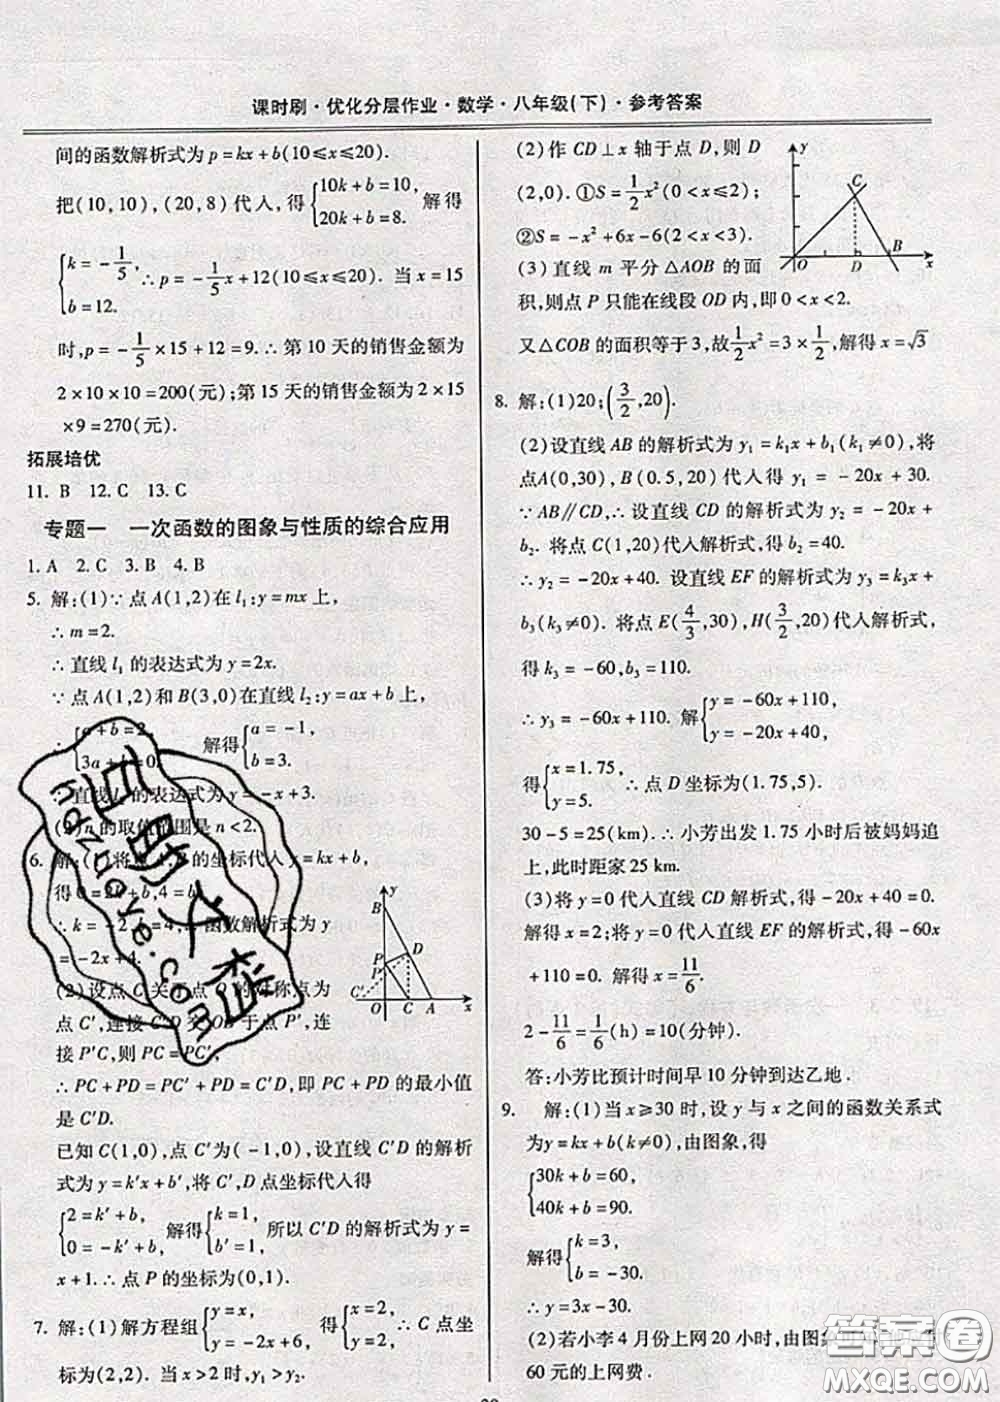 课时刷·优化分层作业·数学·八年级(下)·参考答案
间的函数解析式为p=kx+b(10≤x≤20).
把(10,10),(20,8)代入,得{10k+b=10, 20k+b=8. 解得
{k=-1/5, b=12. ∴p=-1/5x+12(10≤x≤20). 当x=15
时,p=-1/5×15+12=9.∴第10天的销售金额为
2×10×10=200(元);第15天的销售金额为2×15
×9=270(元).
拓展培优
11. B 12. C 13. C
专题一 一次函数的图象与性质的综合应用
1. A 2. C 3. B 4. B
5. 解:(1)∵点A(1,2)在l₁:y=mx上,
∴m=2.
∴直线l₁的表达式为y=2x.
∵点A(1,2)和B(3,0)在直线l₂:y=ax+b上,
∴{a+b=2, 3a+b=0. 解得{a=-1, b=3.
∴直线l₂的表达式为y=-x+3.
(2)n的取值范围是n<2.
6. 解:(1)将 的坐标代入y=kx+b,
得0=2k+b,4=b,
∴k=-2, =4,∴函数解析式为y
=-2x+4.
(2)设点C关于点O的对称点为
点C′,连接C′D交OB于点P′,连
接P′C,则PC=PC′,
∴PC+PD=PC′+PD=C′D,即PC+PD的最小值
是C′D.
已知C(1,0),点C′(-1,0),设直线C′D的解析
式为y=k′x+b′,将C′、D点坐标代入得
{2=k′+b′, 0=-k′+b′, 解得{k=1, b′=1. 所以C′D的解析式为y=
x+1.∴点P的坐标为(0,1).
y
B
D
P
P′
C′
O
C
A
x
7. 解:(1)解方程组{y=x, y=-2x+6, 得{x=2, y=2, ∴C点坐
标为(2,2). 当x>2时,y₁>y₂.
(2)作CD⊥x轴于点D,则D
(2,0).①S=1/2x²(0<x≤2);
②S=-x²+6x-6(2<x<3).
(3)直线m平分△AOB的面
积,则点P只能在线段OD内,即0<x<2.
又△COB的面积等于3,故1/2x²=3×1/2,解得x=√3
y
C
O
D
B
x
8. 解:(1)20;(3/2,20).
(2)设直线AB的解析式为y₁=k₁x+b₁(k₁≠0),将
点A(0,30),B(0.5,20)代入得y₁=-20x+30.
∵AB∥CD,∴设直线CD的解析式为y₂=-20x
+b₂. 将点C(1,20)代入解析式,得b₂=40.
∴y₂=-20x+40. 设直线EF的解析式为y₃=k₃x+
b₃(k₃≠0). 将点E(4/3,30),H(3/2,20)代入解析式,
得k₃=-60,b₃=110.
∴y₃=-60x+110. 解{y=-60x+110, y=-20x+40,
得{x=1.75, y=5. ∴点D坐标为(1.75,5).
30-5=25(km).∴小芳出发1.75小时后被妈妈追
上,此时距家25 km.
(3)将y=0代入直线CD解析式,得-20x+40=0,
解得x=2;将y=0代入直线EF的解析式,得-60x
+110=0. 解得x=11/6.
2-11/6=1/6(h)=10(分钟).
答:小芳比预计时间早10分钟到达乙地.
9. 解:(1)当x≥30时,设y与x之间的函数关系式
为y=kx+b(k≠0),由图象,得
{30k+b=60, 40k+b=90.
解得{k=3, b=-30.
∴y=3x-30.
(2)若小李4月份上网20小时,由图象
60元的上网费.
答案圈
MXQE.COM